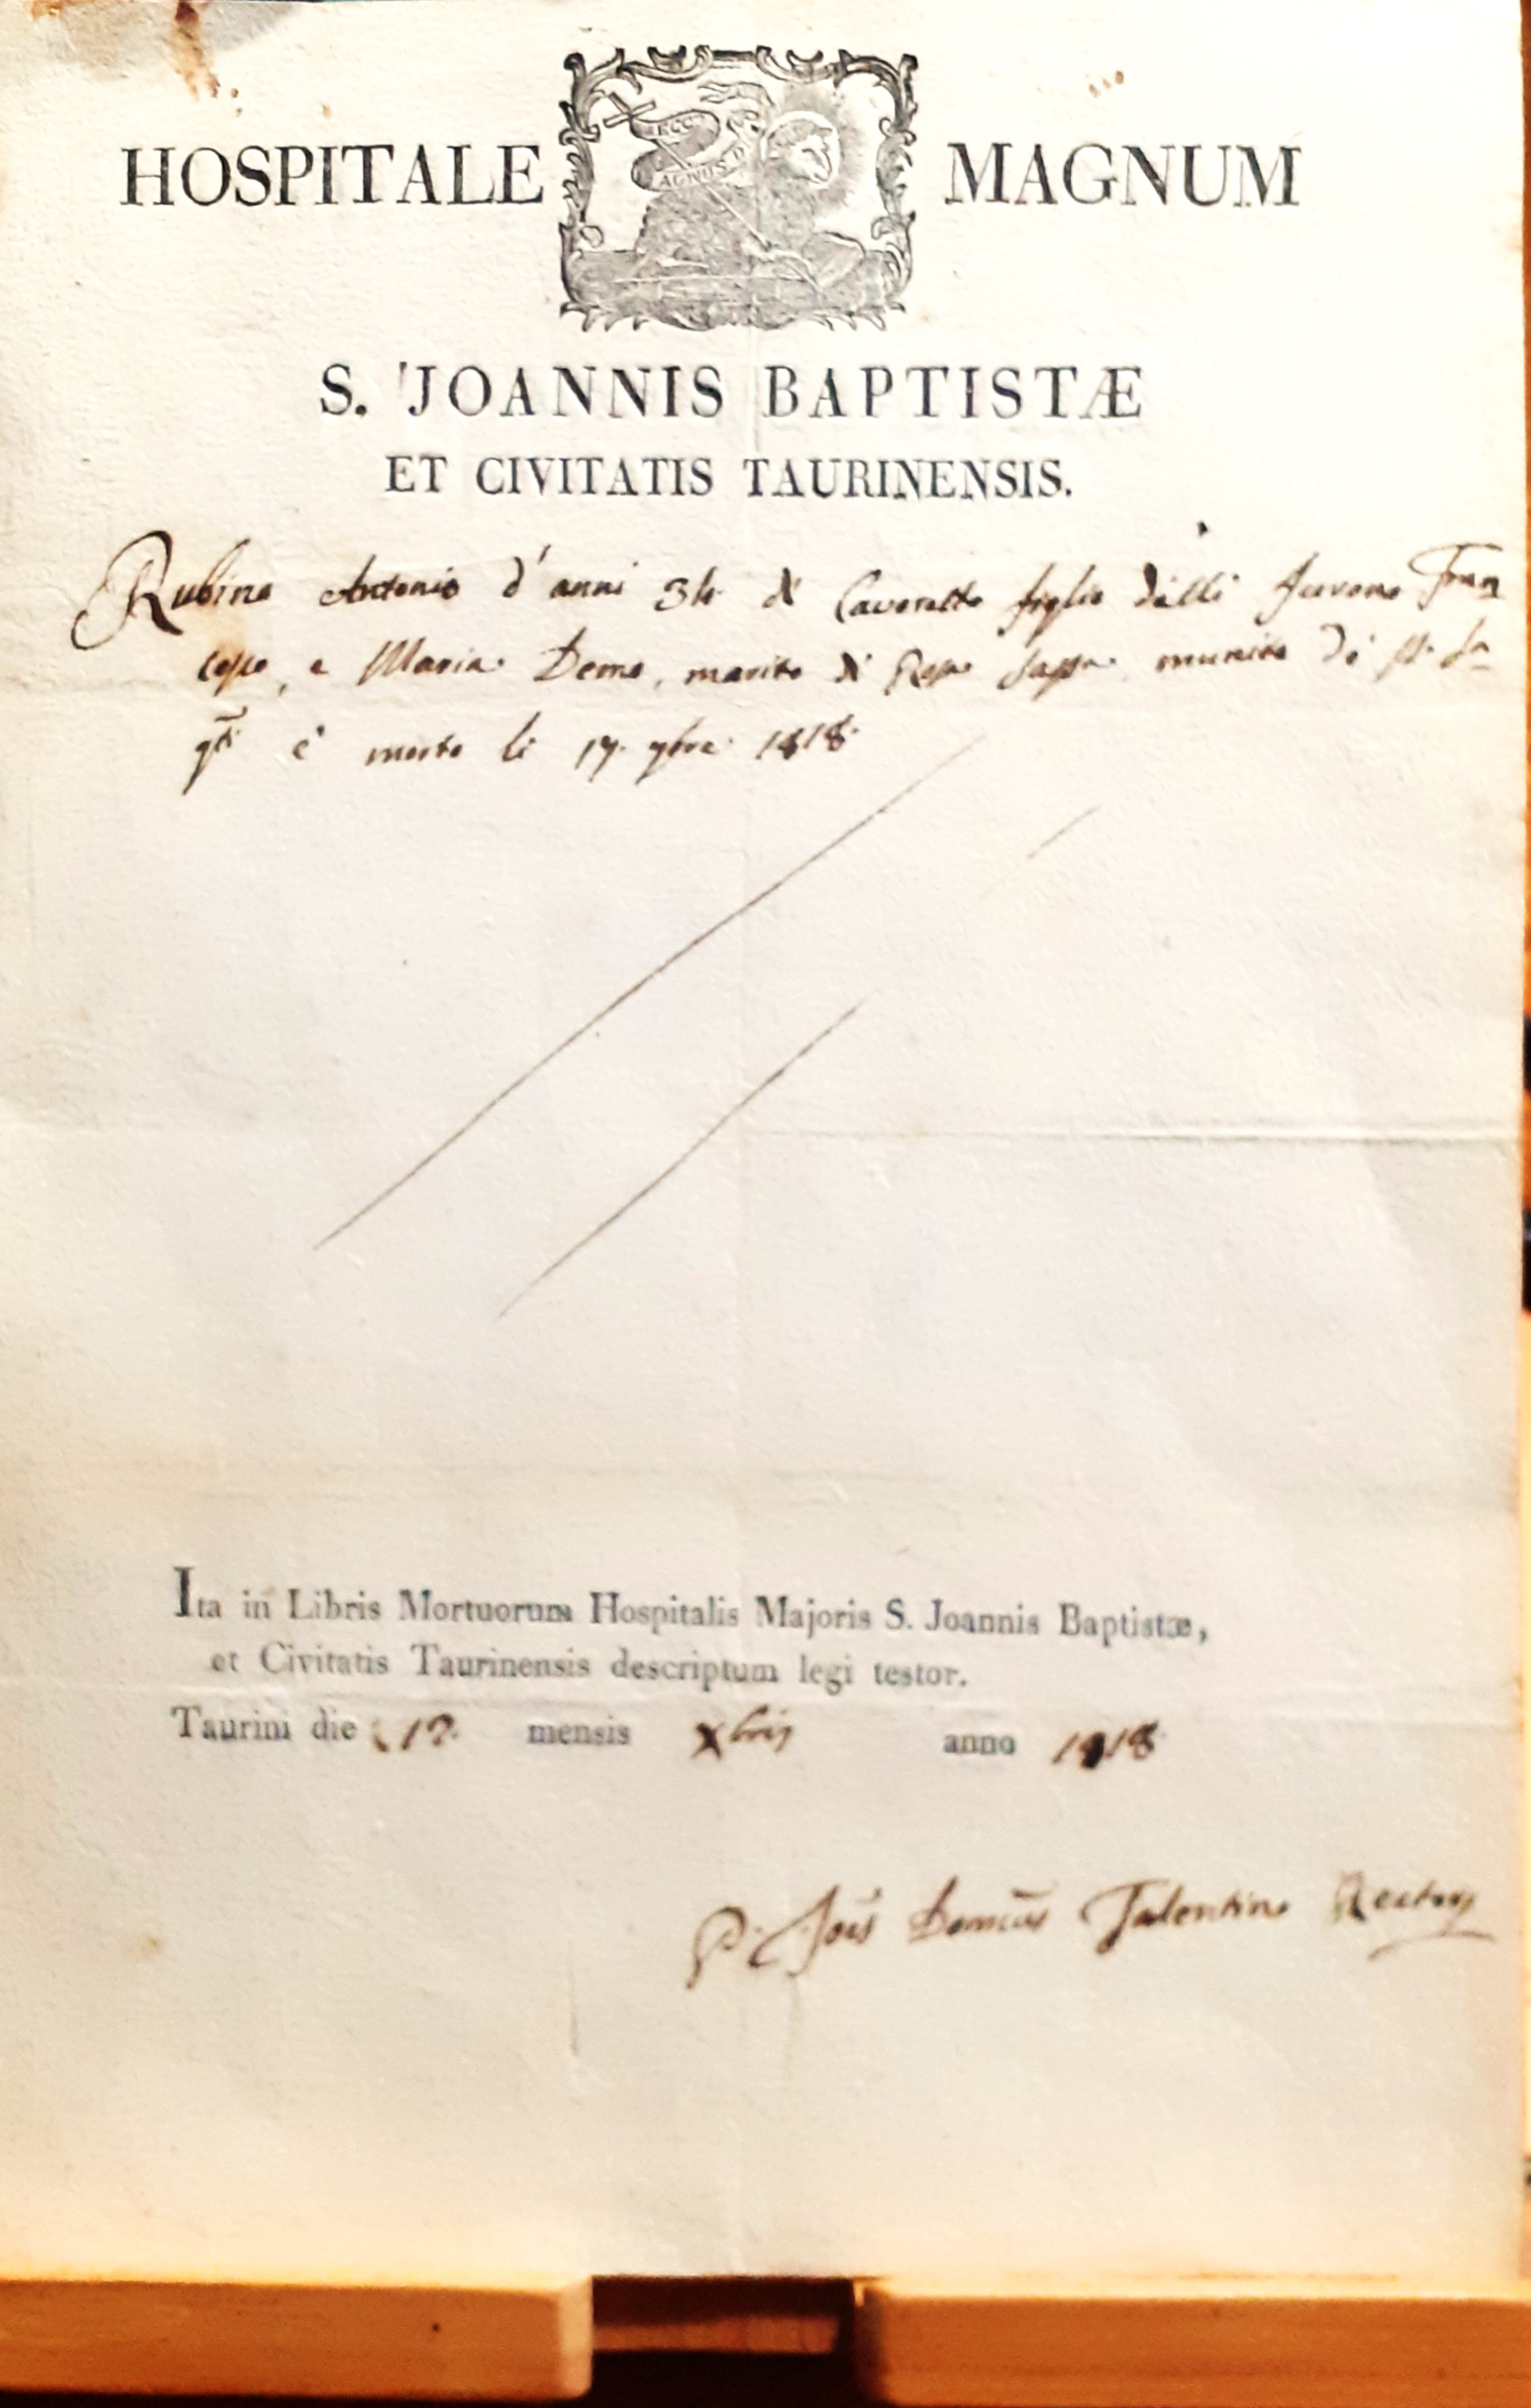 HOSPITALE MAGNUM
ECCE
AGNUS D
S. JOANNIS BAPTISTÆ
ET CIVITATIS TAURINENSIS.
Rubino Antonio d'anni 34 di Cavoretto figlio delli furono Fran
cesco, e Maria Demo, marito di Rosa munito di SS. Sa
gti è morto li 17. 9bre 1818.
Ita in Libris Mortuorum Hospitalis Majoris S. Joannis Baptistæ,
et Civitatis Taurinensis descriptum legi testor.
Taurini die mensis Xbris anno 1818
P. Jois Domcus Talentino Rector